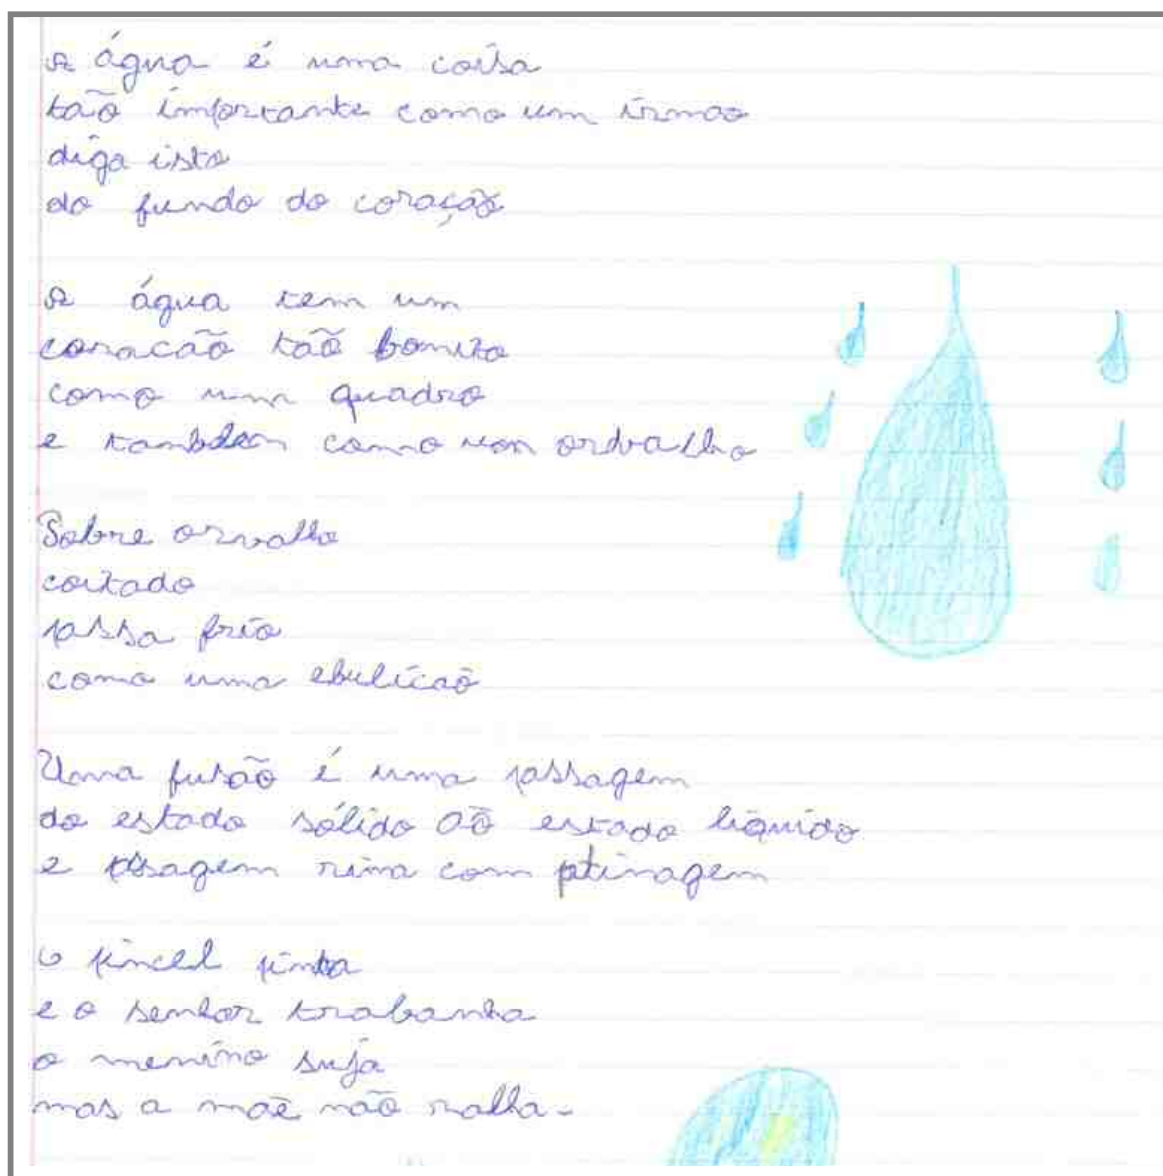 A água é uma coisa
tão importante como um irmão
diga isto
do fundo do coração
A água tem um
coracão tão bonito
como um quadro
e também como um ordvalho
Pobre orvalho
coitado
passa frio
como uma ebulicão
Uma fusão é uma passagem
do estado sólido ao estado líquido
e psagem rima com ptinagem
O pincel pinta
e o senhor trabanha
o menino suja
mas a mãe não ralha.